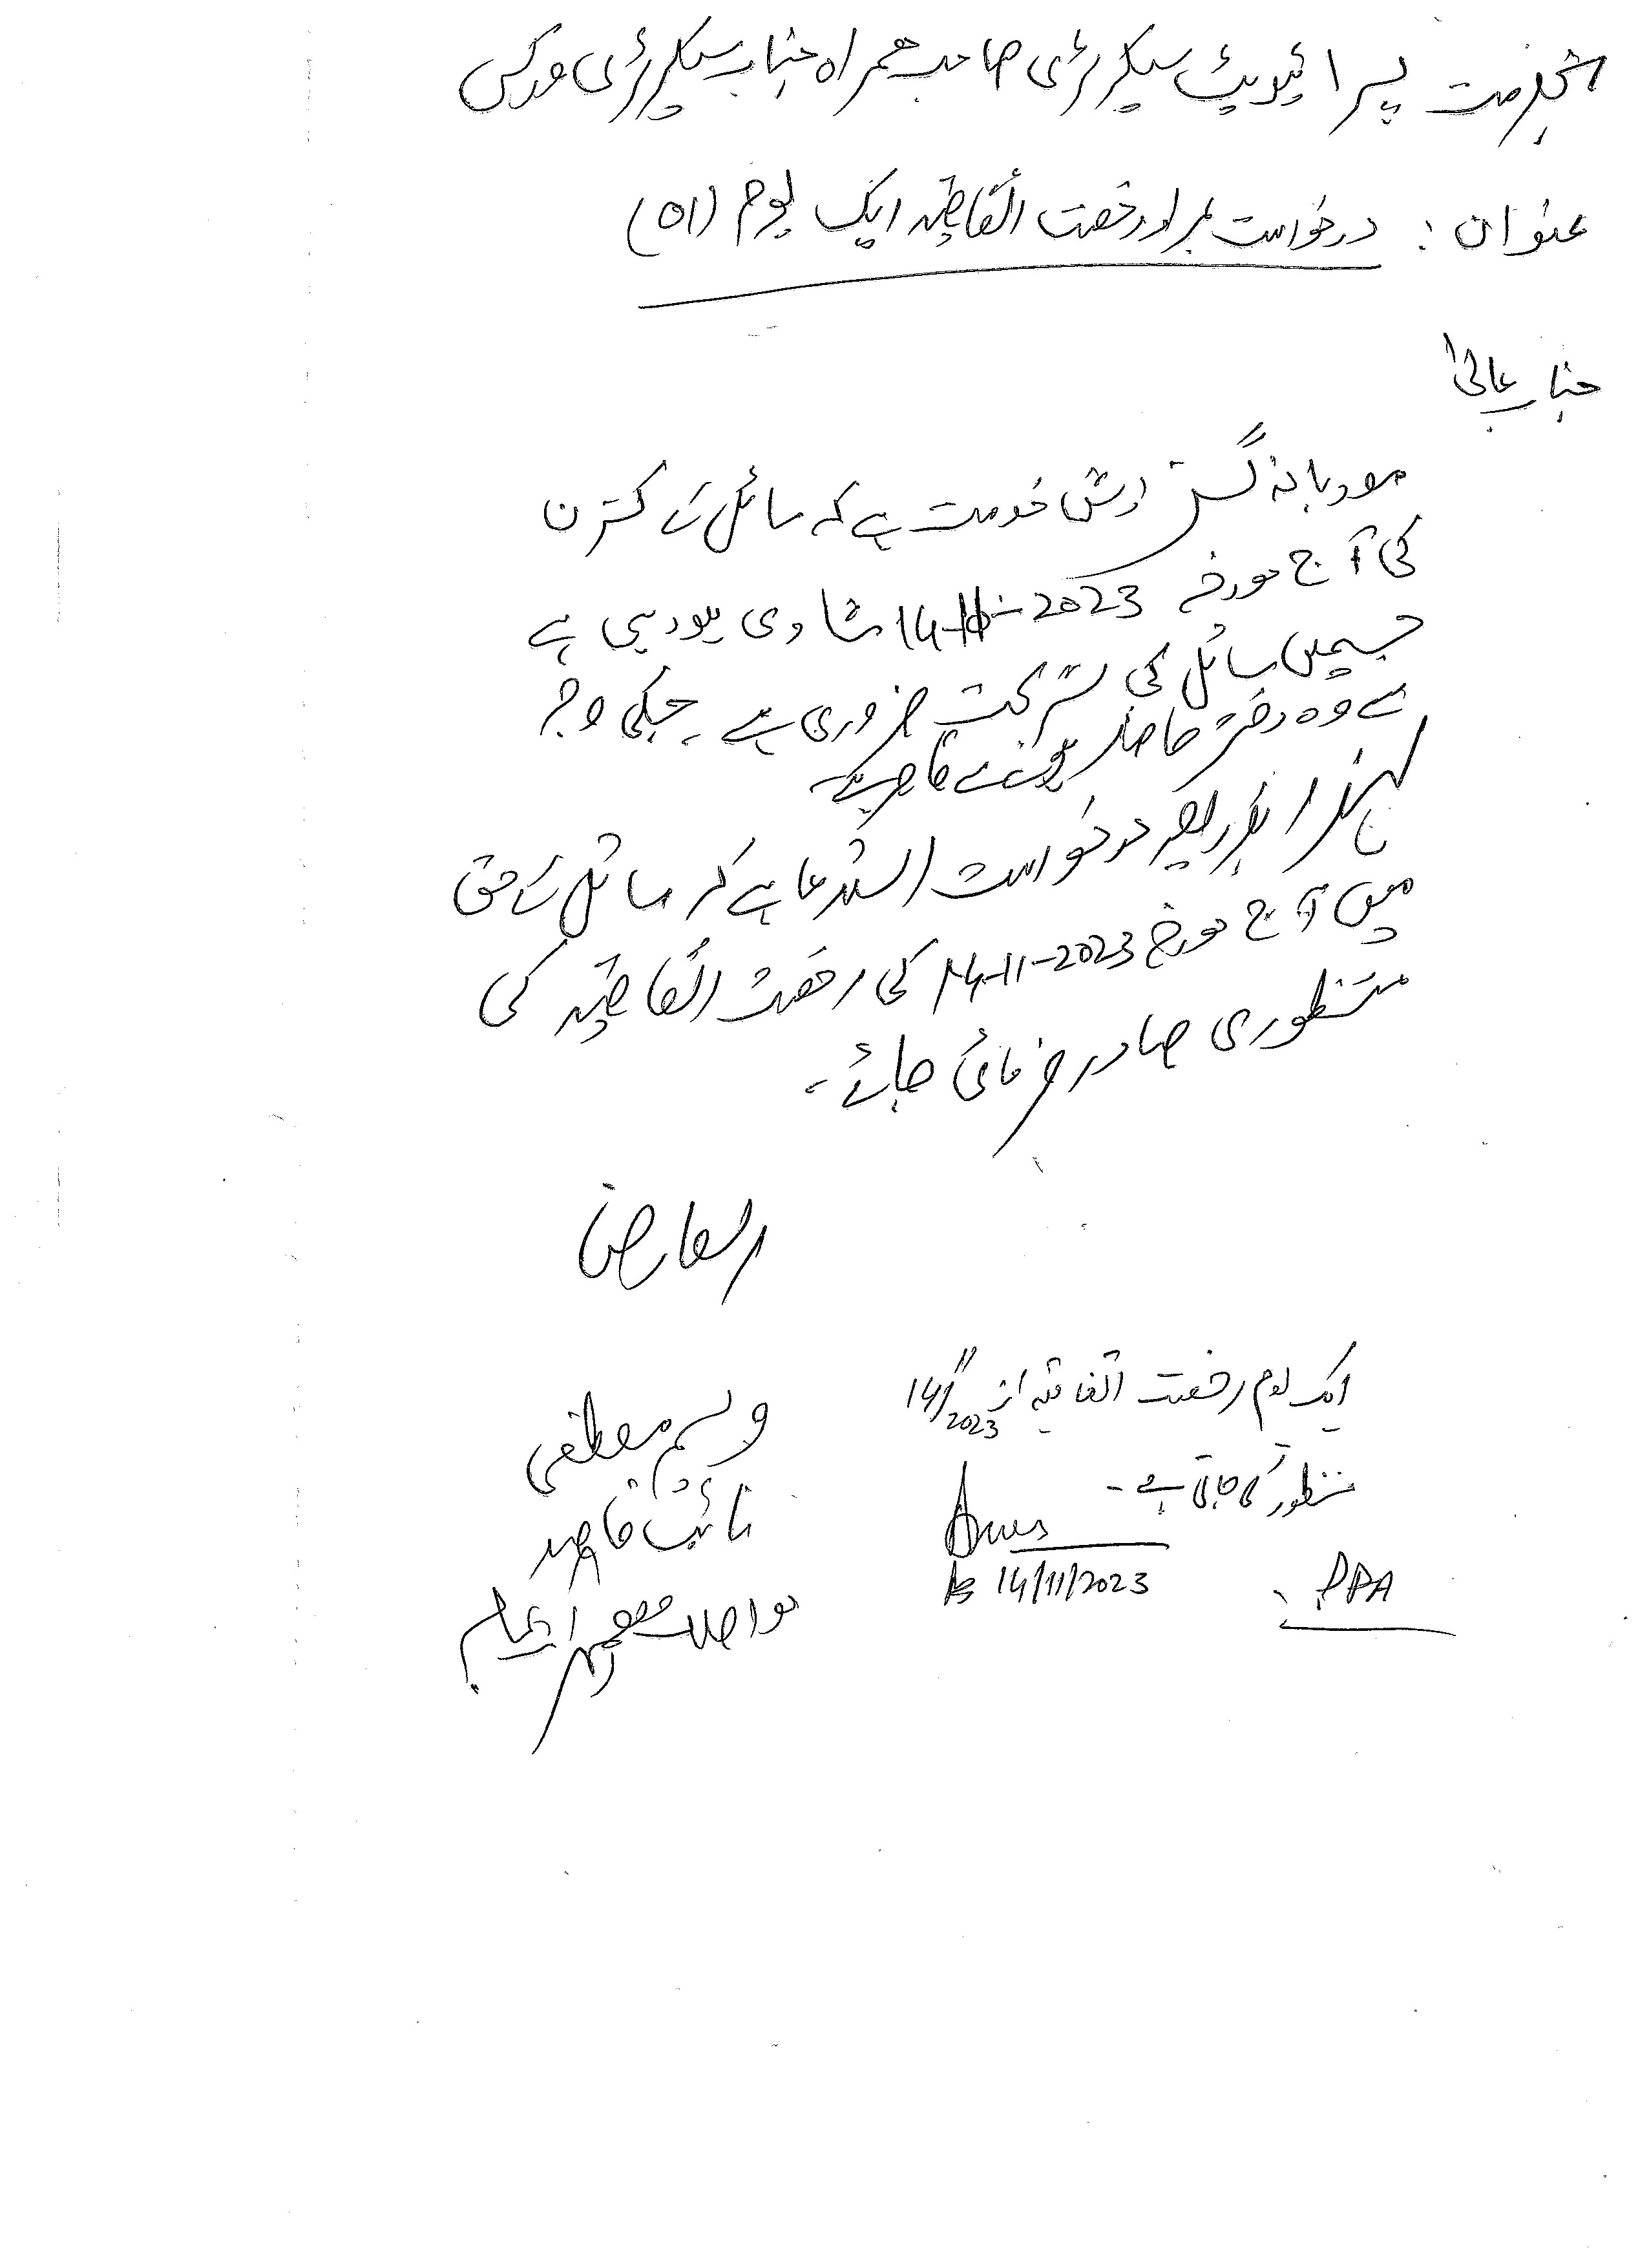 بخدمت پرائیویٹ سیکرٹری صاحب ہمراہ جناب سیکرٹری ورکس
عنوان : درخواست بمراد رخصت اتفاقیہ ایک یوم (01)
جناب عالیٰ
مودبانہ گستارش خدمت ہے کہ سائل کے کزن
کی آج مورخہ 14-11-2023 شادی ہورہی ہے
جسمیں سائل کی شرکت ضروری ہے۔ جسکی وجہ
سے وہ دفتر حاضر ہونے سے قاصر ہے۔
لہذا بذریعہ درخواست استدعا ہے کہ سائل کے حق
میں آج مورخہ 14-11-2023 کی رخصت اتفاقیہ کی
منظوری صادر فرمائی جائے۔
العارض
وسیم مصطفی
نائب قاصد
مواصلات
ایک یوم رخصت اتفاقیہ از 14/11/2023
منظور کی جاتی ہے۔
14/11/2023
PPA